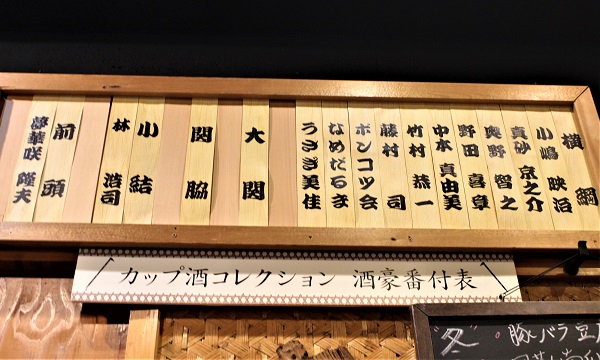 横綱
小嶋 映治
真砂 京之介
奥野 智之
野田 喜章
中本 真由美
竹村 恭一
藤村 司
ポンコツ会
なめだるま
うさぎ美佳
大関
関脇
小結
林 浩司
前頭
夢華咲 隆夫
カップ酒コレクション 酒豪番付表
"冬"
・豚バラ豆